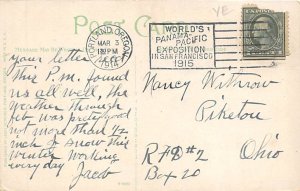 YE
POST CARD
PORTLAND, OREGON
MAR 3
PM
1914
WORLD'S
PANAMA PACIFIC
EXPOSITION
IN SAN FRANCISCO
1915
your letter
this P.M. found
us all well, the
weather through
feb was pretty good
not more than 42
inch of snow this
winter working
every day
Jacob
Nancy Withrow
Piketon
Ohio
RFD #2
Box 20